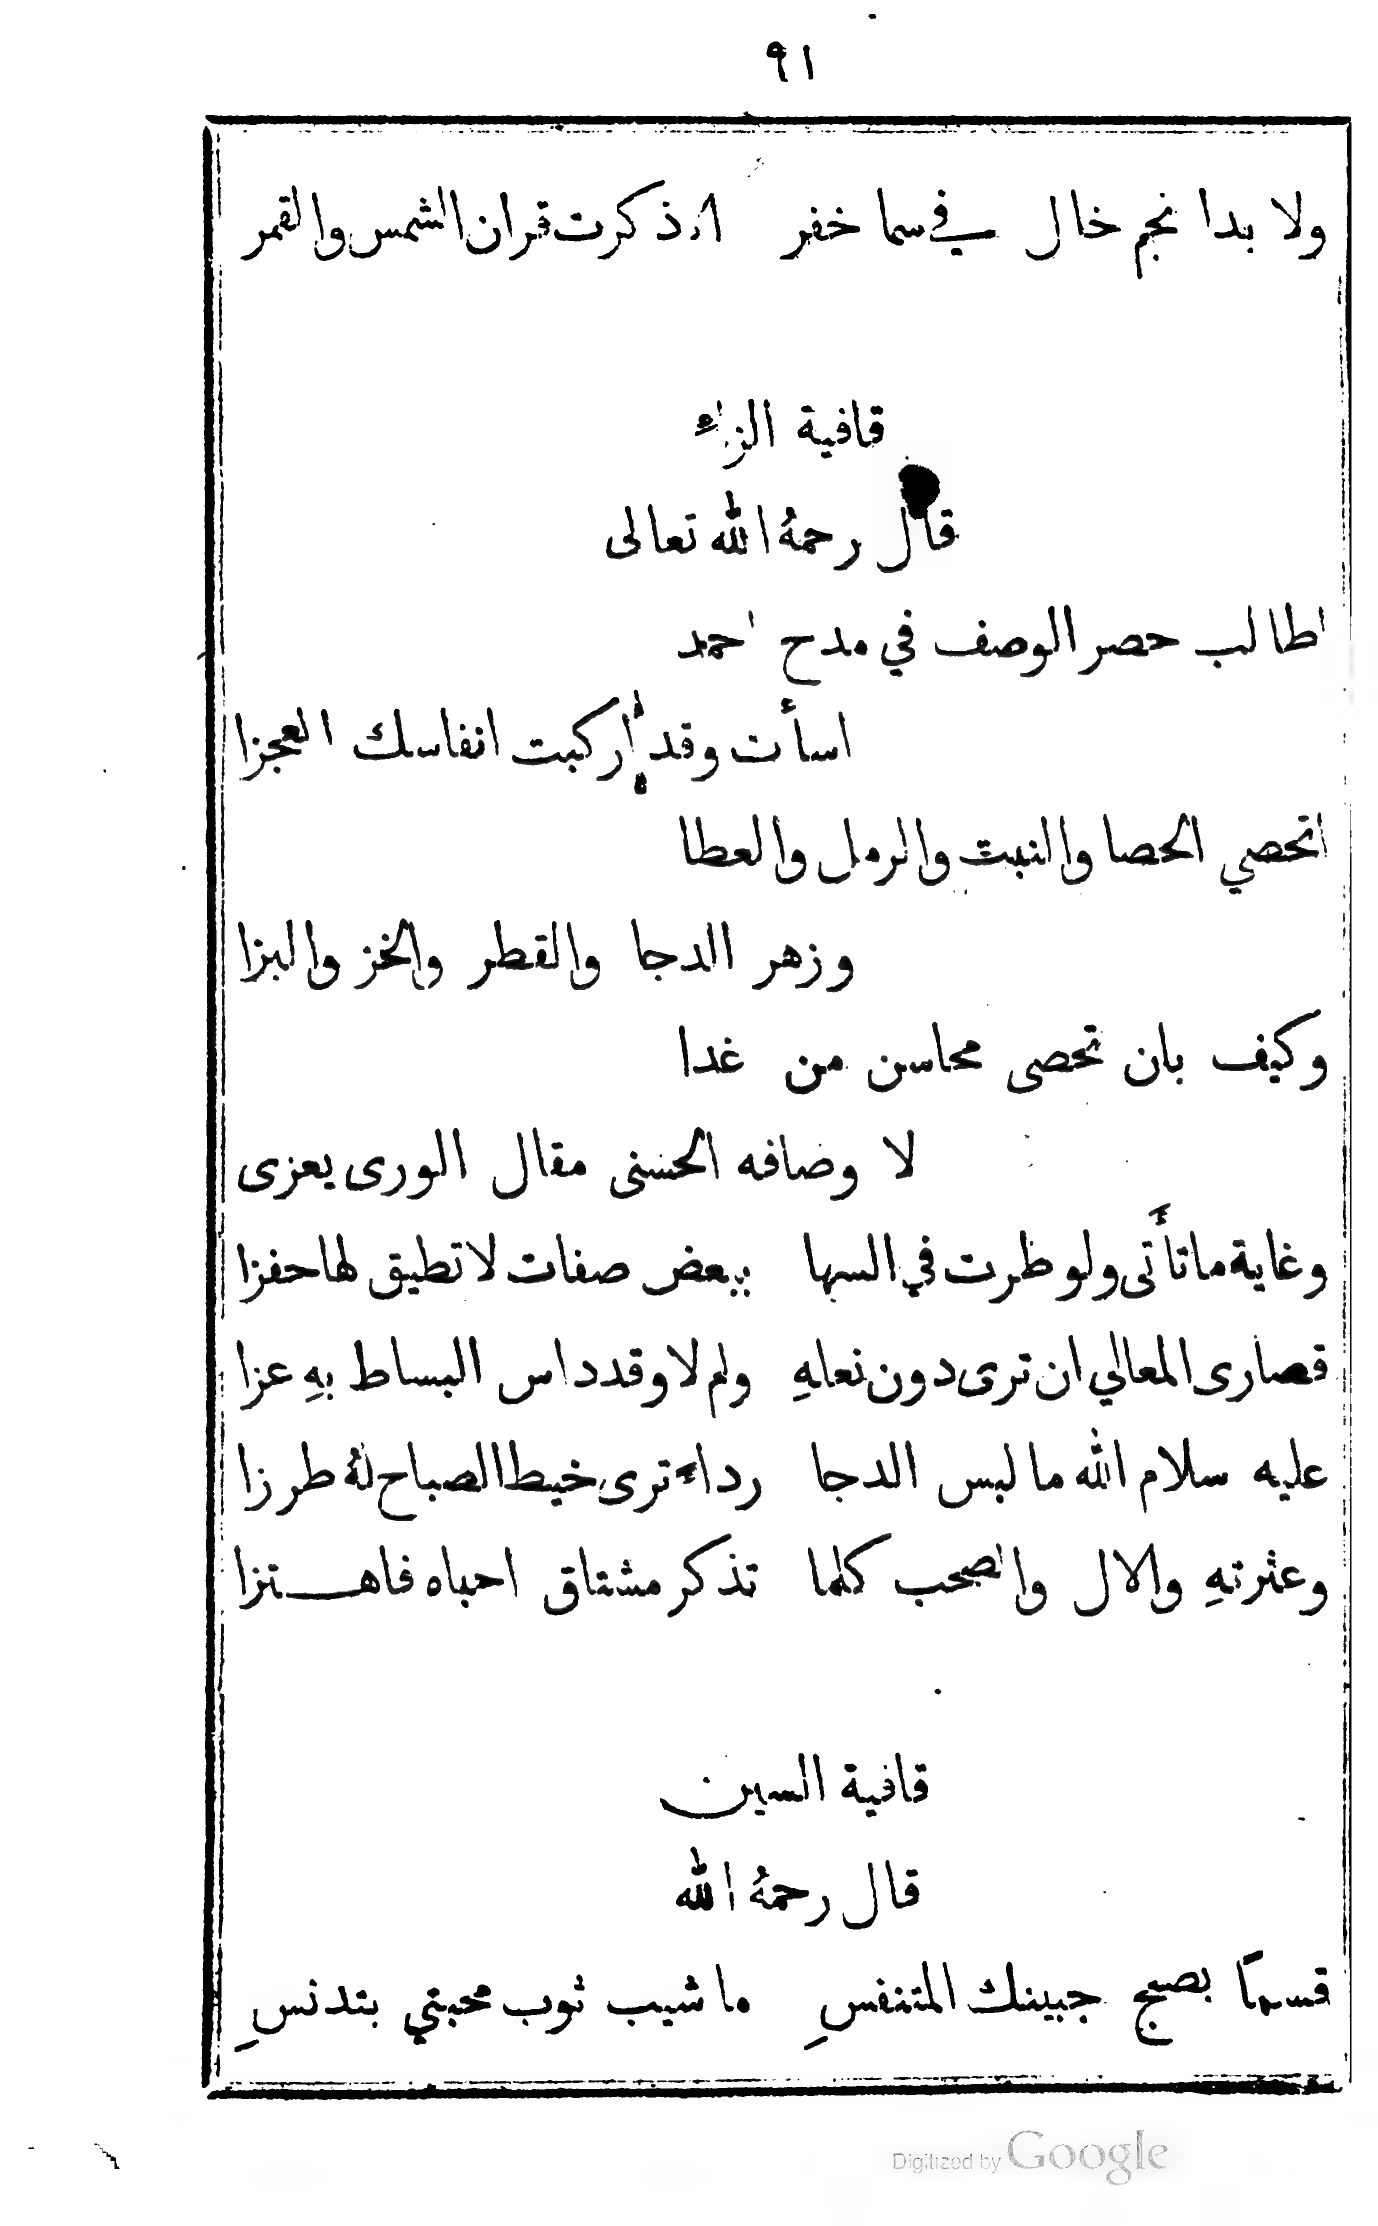 ٩١
ولا بدا نجم خال في سما خفر الا ذكرت قران الشمس والقمر
قافية الزاء
قال رحمهُ الله تعالى
اطالب حصر الوصف في مدح احمد
اسأت وقد اركبت انفاسك العجزا
اتحصي الحصا والنبت والرمل والعطا
وزهر الدجا والقطر والخز والبزا
وكيف بان تحصى محاسن من غدا
لا وصافه الحسنى مقال الورى يعزى
وغاية ما تأتى ولو طرت في السها ببعض صفات لا تطيق لها حفزا
قصارى المعالي ان ترى دون نعلهِ ولم لا وقد داس البساط بهِ عزا
عليه سلام الله ما لبس الدجا رداء ترى خيط الصباح لهُ طرزا
وعترتهِ والال والصحب كلما تذكر مشتاق احباه فاهتزا
قافية السين
قال رحمهُ الله
قسمًا بصبح جبينك المتنفسِ ما شيب ثوب محبتي بتدنسِ
Digitized by Google